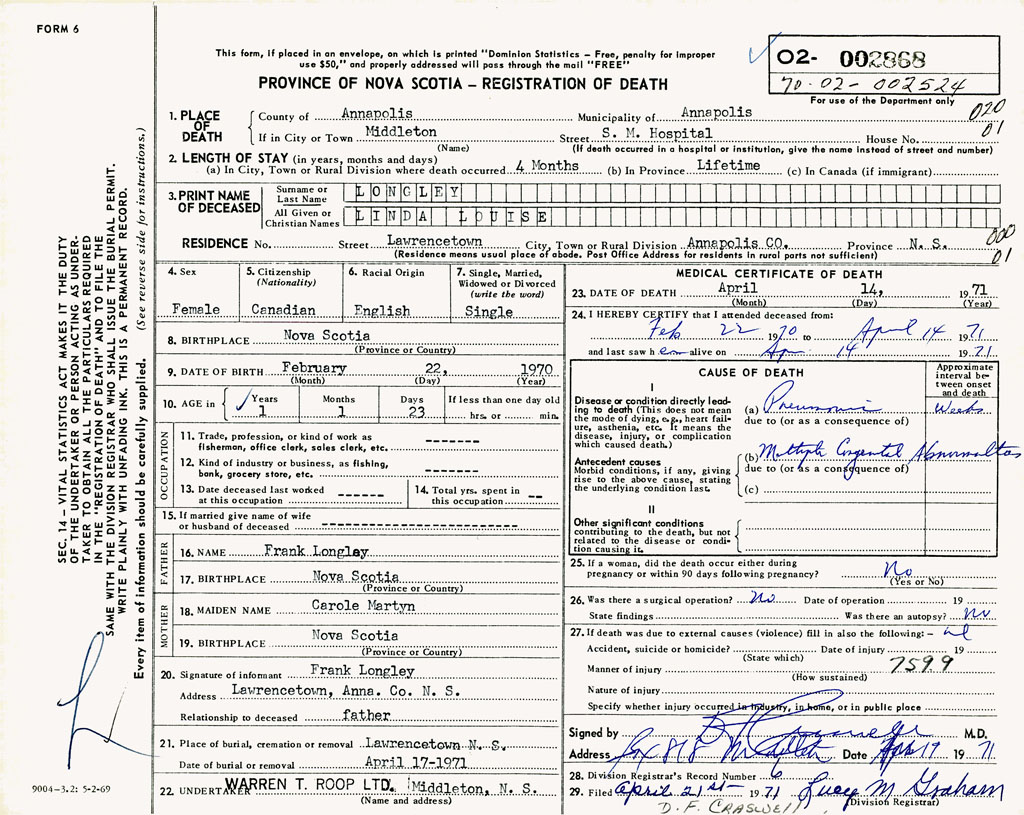 FORM 6
This form, if placed in an envelope, on which is printed "Dominion Statistics – Free, penalty for improper
use $50," and properly addressed will pass through the mail "FREE"
PROVINCE OF NOVA SCOTIA – REGISTRATION OF DEATH
02- 002868
70-02-002524
For use of the Department only
1. PLACE OF DEATH
County of Annapolis Municipality of Annapolis 020
If in City or Town Middleton Street S. M. Hospital House No. 01
(Name) (If death occurred in a hospital or institution, give the name instead of street and number)
2. LENGTH OF STAY (in years, months and days)
(a) In City, Town or Rural Division where death occurred 4 Months (b) In Province Lifetime (c) In Canada (if immigrant)
3. PRINT NAME OF DECEASED
Surname or Last Name LONGLEY
All Given or Christian Names LINDA LOUISE
RESIDENCE No. Street Lawrencetown City, Town or Rural Division Annapolis CO. Province N. S. 000
(Residence means usual place of abode. Post Office Address for residents in rural parts not sufficient) 01
4. Sex
Female
5. Citizenship
(Nationality)
Canadian
6. Racial Origin
English
7. Single, Married,
Widowed or Divorced
(write the word)
Single
8. BIRTHPLACE Nova Scotia
(Province or Country)
9. DATE OF BIRTH February 22, 1970
(Month) (Day) (Year)
10. AGE in
Years Months Days If less than one day old
1 1 23 hrs. or min.
OCCUPATION
11. Trade, profession, or kind of work as
fishermen, office clerk, sales clerk, etc. -------
12. Kind of industry or business, as fishing,
bank, grocery store, etc. -------
13. Date deceased last worked
at this occupation ------
14. Total yrs. spent in
this occupation --
15. If married give name of wife
or husband of deceased -------
FATHER
16. NAME Frank Longley
17. BIRTHPLACE Nova Scotia
(Province or Country)
MOTHER
18. MAIDEN NAME Carole Martyn
19. BIRTHPLACE Nova Scotia
(Province or Country)
20. Signature of informant Frank Longley
Address Lawrencetown, Anna. Co. N. S.
Relationship to deceased father
21. Place of burial, cremation or removal Lawrencetown N. S.
Date of burial or removal April 17-1971
22. UNDERTAKER WARREN T. ROOP LTD. Middleton, N. S.
(Name and address)
MEDICAL CERTIFICATE OF DEATH
23. DATE OF DEATH April 14, 1971
(Month) (Day) (Year)
24. I HEREBY CERTIFY that I attended deceased from:
Feb 22 1970 to April 14 1971
and last saw h er alive on Ap 14 1971
CAUSE OF DEATH
Approximate
interval be-
tween onset
and death
I
Disease or condition directly lead-
ing to death (This does not mean
the mode of dying, e.g., heart fail-
ure, asthenia, etc. It means the
disease, injury, or complication
which caused death.)
(a) Pneumonia Weeks
due to (or as a consequence of)
Antecedent causes
Morbid conditions, if any, giving
rise to the above cause, stating
the underlying condition last.
(b) Multiple Congental Abnormalties
due to (or as a consequence of)
(c)
II
Other significant conditions
contributing to the death, but not
related to the disease or condi-
tion causing it.
25. If a woman, did the death occur either during
pregnancy or within 90 days following pregnancy? No
(Yes or No)
26. Was there a surgical operation? No Date of operation 19
State findings Was there an autopsy? No
27. If death was due to external causes (violence) fill in also the following: –
Accident, suicide or homicide? Date of injury 19
(State which)
Manner of injury 7599
(How sustained)
Nature of injury
Specify whether injury occurred in industry, in home, or in public place
Signed by M.D.
Address Box 818 Middleton Date Apr 19 1971
28. Division Registrar's Record Number 6
29. Filed April 21st- 1971 Lucy M Graham
(Division Registrar)
D. F. CRASWELL
SEC. 14 – VITAL STATISTICS ACT MAKES IT THE DUTY
OF THE UNDERTAKER OR PERSON ACTING AS UNDER-
TAKER TO OBTAIN ALL THE PARTICULARS REQUIRED
IN THE "REGISTRATION OF DEATH" AND TO FILE THE
SAME WITH THE DIVISION REGISTRAR WHO SHALL ISSUE THE BURIAL PERMIT.
WRITE PLAINLY WITH UNFADING INK. THIS IS A PERMANENT RECORD.
Every item of information should be carefully supplied. (See reverse side for instructions.)
9004-3.2: 5-2-69